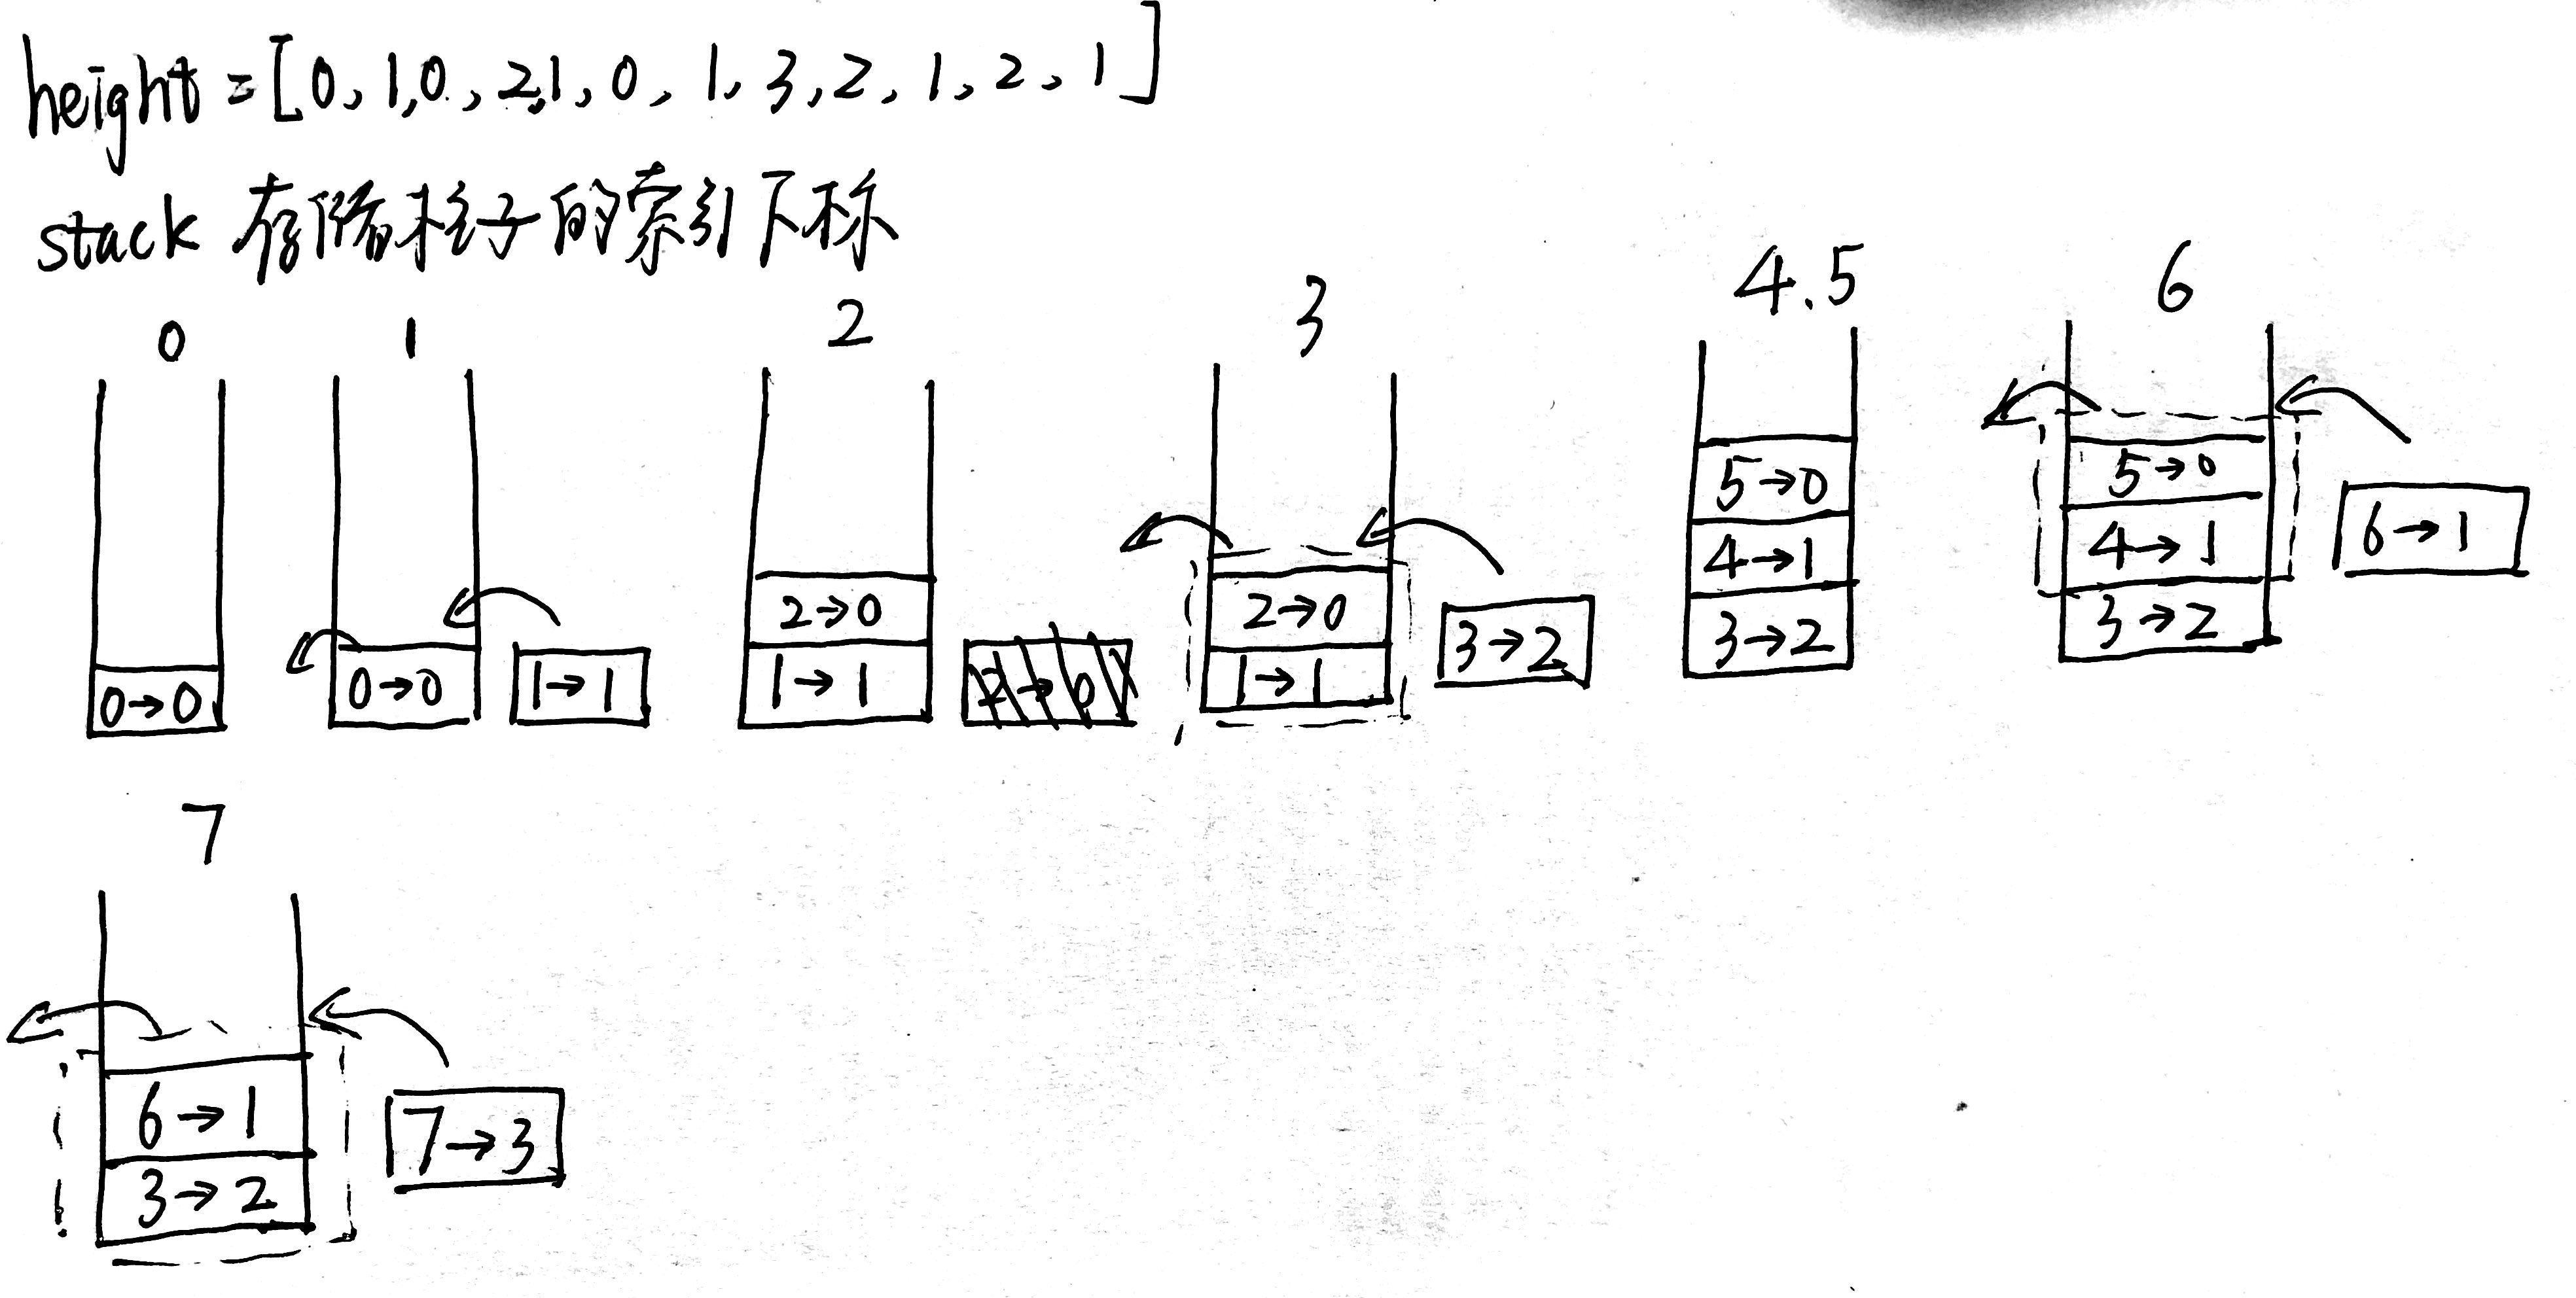 height = [0, 1, 0, 2, 1, 0, 1, 3, 2, 1, 2, 1]
stack 存储柱子的索引下标
0 1 2 3 4.5 6
0→0
0→0 1→1
2→0
1→1
2→0
1→1
3→2
5→0
4→1
3→2
5→0
4→1
3→2
6→1
7
6→1
3→2
7→3